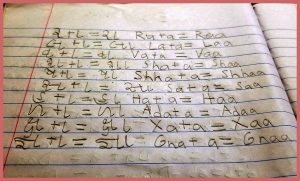 ર+ા = રા Ra+a = Raa
લ+ા = લા La+a = Laa
વ+ા = વા Va+a = Vaa
શ+ા = શા Sha+a = Shaa
ષ+ા = ષા Shha+a = Shhaa
સ+ા = સા Sa+a = Saa
હ+ા = હા Ha+a = Haa
ળ+ા = ળા Ada+a = Adaa
ક્ષ+ા = ક્ષા Xa+a = Xaa
જ્ઞ+ા = જ્ઞા Gna+a = Gnaa